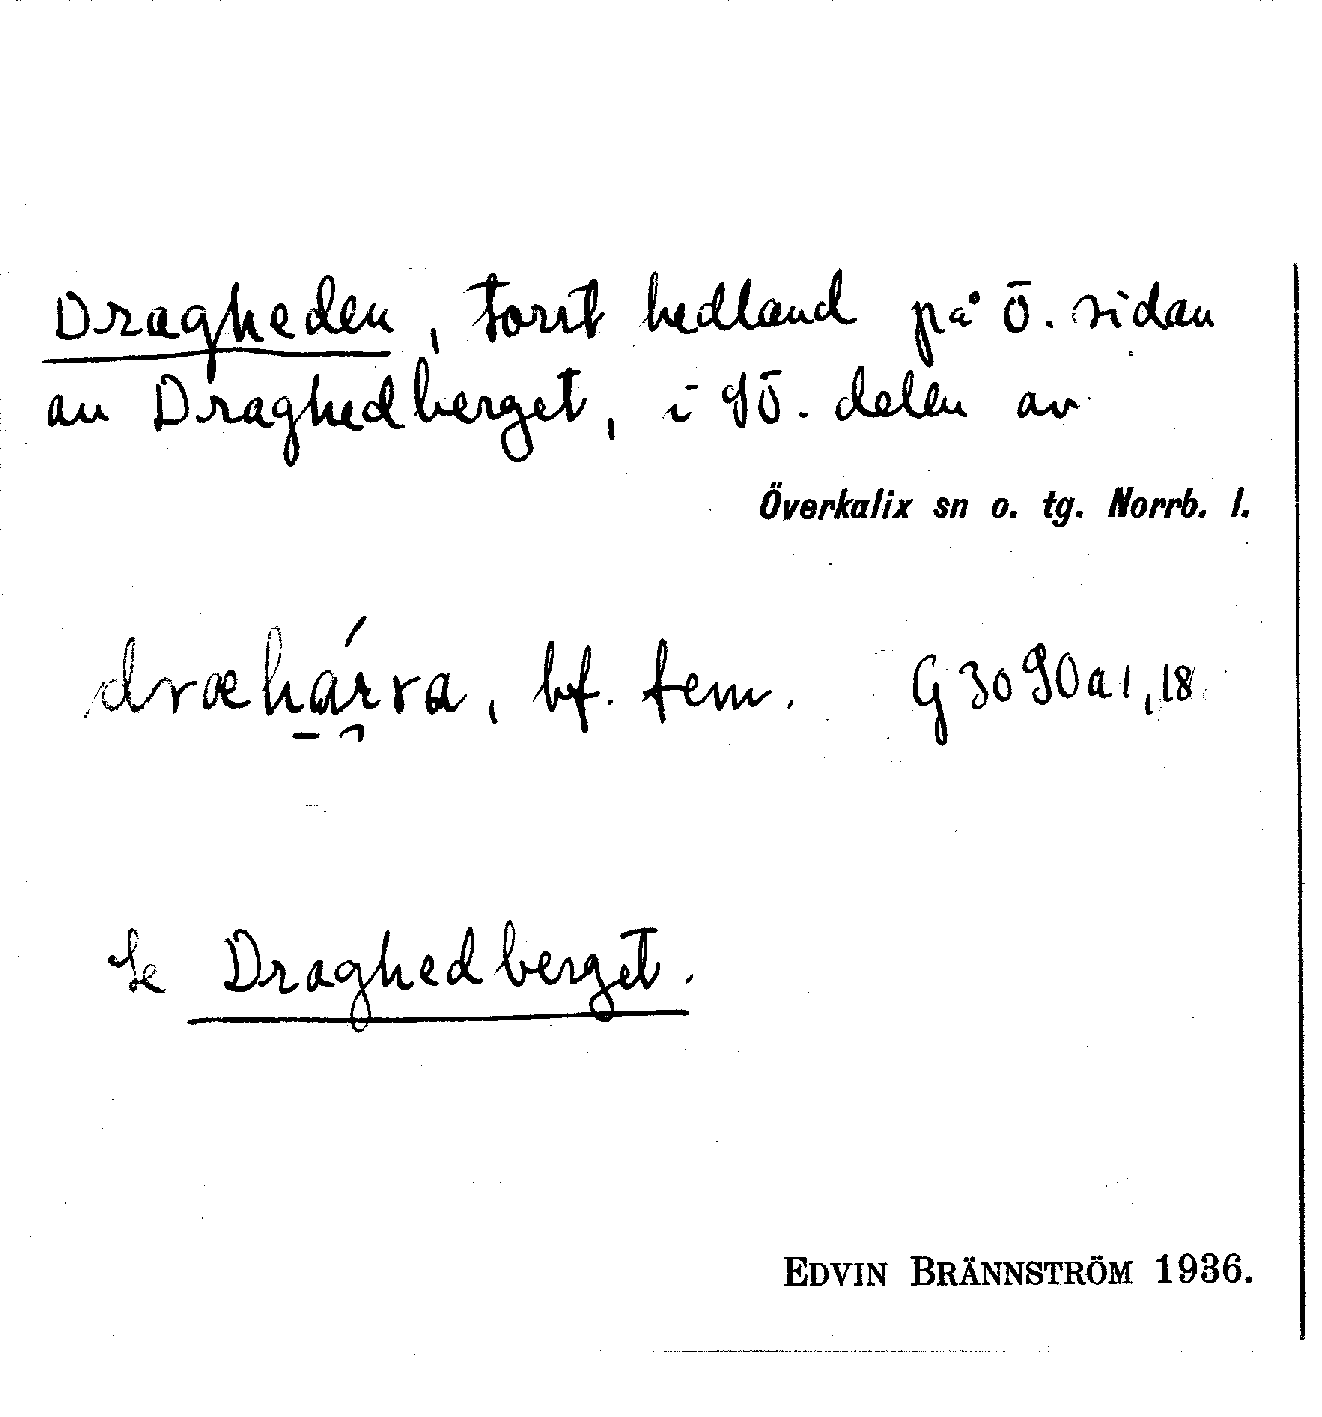 Dragheden, torrt hedland på Ö. sidan
av Draghedberget, i SÖ. delen av
Överkalix sn o. tg. Norrb. l.
bf. fem. G 3090 a 1, 18
Se Draghedberget.
EDVIN BRÄNNSTRÖM 1936.